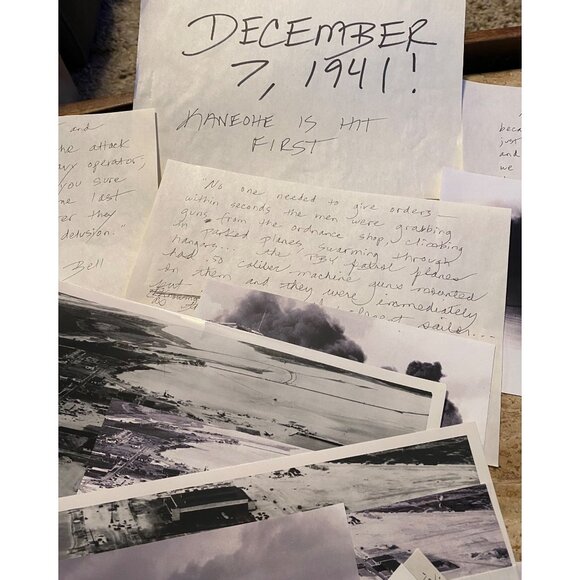 DECEMBER
7, 1941!
KANEOHE IS HIT
FIRST
and
the attack
operator,
you sure
last
they
delusion."
Bell
"No one needed to give orders—
within seconds the men were grabbing
guns from the ordnance shop, climbing
in parked planes, swarming through
hangars... the PBY patrol planes
had .50 caliber machine guns mounted
on them and they were immediately
put
sailor...
beca
just
and
we